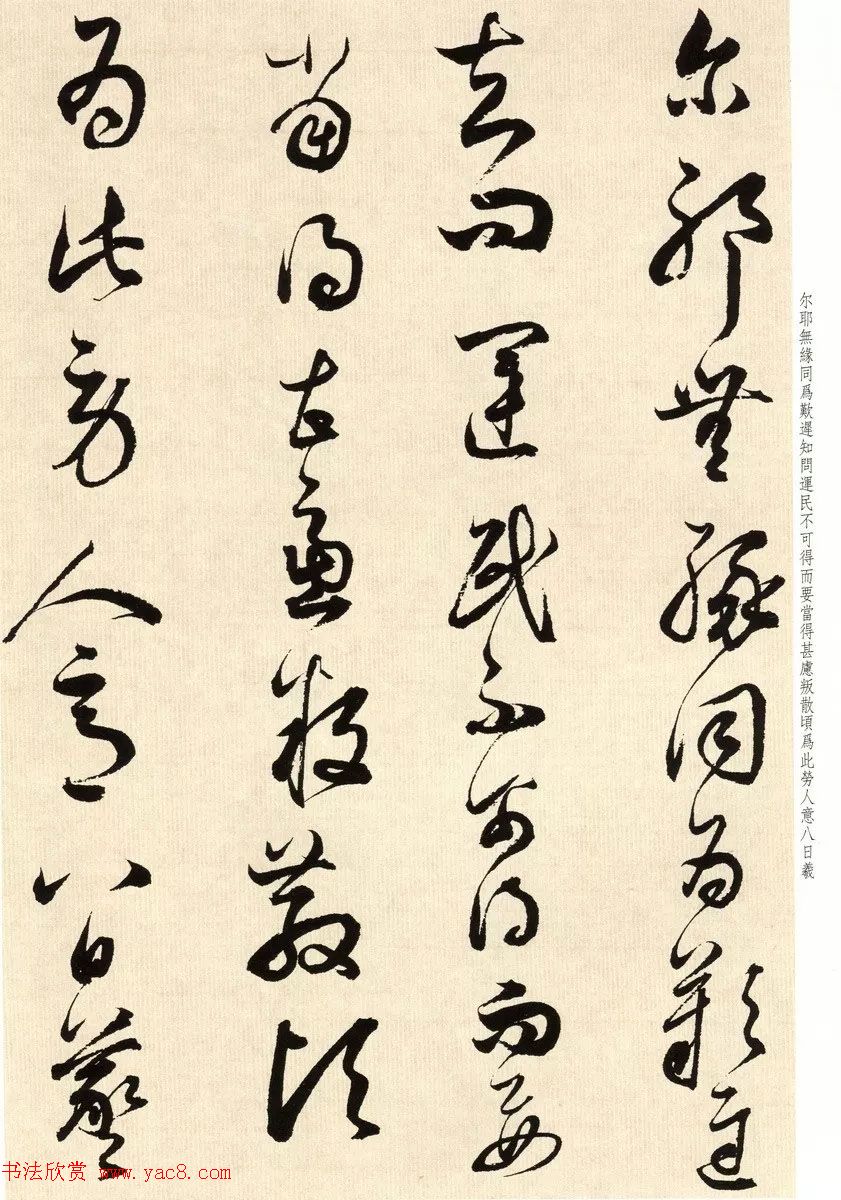 尔耶無緣同為歎遅
知問運民不可得而要
當得甚慮叛散頃
為此勞人意八日羲
尔耶無緣同爲歎遲知問運民不可得而要當得甚慮叛散頃爲此勞人意八日羲
书法欣赏 www.yac8.com